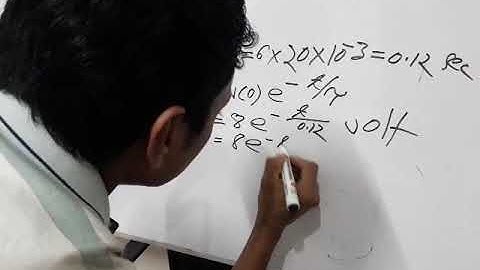 =6×20×10⁻³=0.12 sec
v(0) e^-t/τ
= 8 e^-t/0.12 volt
= 8e^-t